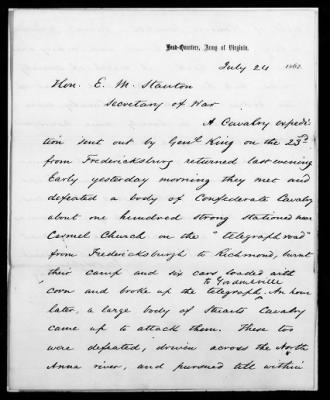 Head-Quarters, Army of Virginia,
July 24 1862.
Hon. E. M. Stanton
Secretary of War
A Cavalry expedi-
tion sent out by Genl. King on the 23d
from Fredericksburg returned last evening
Early yesterday morning they met and
defeated a body of Confederate Cavalry
about one hundred strong stationed near
Carmel Church on the "telegraph road"
from Fredericksburgh to Richmond, burnt
their camp and six cars loaded with
to Gordonsville
corn and broke up the telegraph. An hour
later, a large body of Stuarts Cavalry
came up to attack them. These too
were defeated, driven across the North
Anna river, and pursued till within